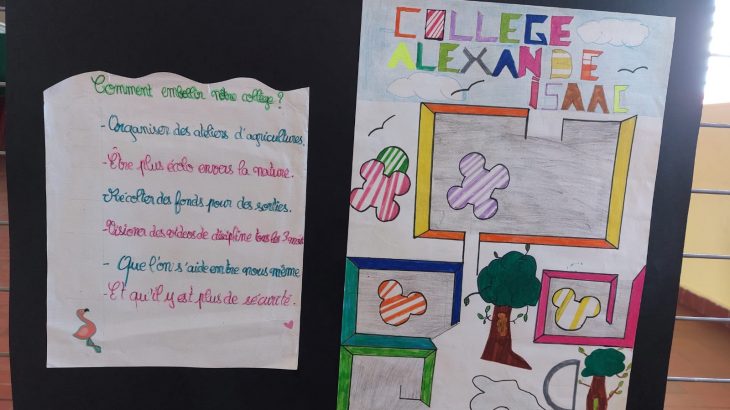 Comment embellir notre collège ?
- Organiser des ateliers d'agricultures.
- Être plus écolo envers la nature.
- Récolter des fonds pour des sorties.
- Visioner des vidéos de discipline tous les 3 mois
- Que l'on s'aide entre nous même
- Et qu'il y est plus de sécurité.
COLLEGE
ALEXANDE
ISAAC